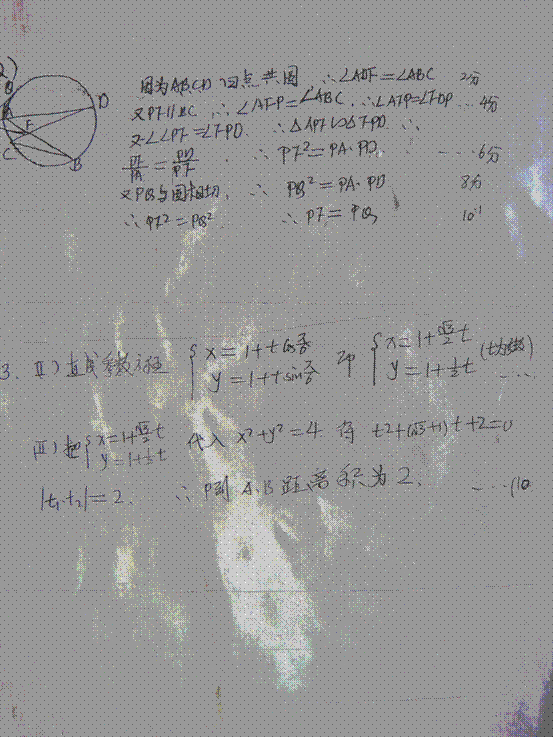 2)
因为ABCD 四点共圆 ∴∠ADF=∠ABC 2分
又PF∥BC ∴∠AFP=∠ABC ∴∠AFP=∠FDP …4分
又∠APF=∠FPD ∴△APF∽△FPD ∴
PF/PA=PD/PF ∴PF²=PA·PD ……6分
又PQ与圆相切 ∴PQ²=PA·PD 8分
∴PF²=PQ² ∴PF=PQ 10
3. Ⅰ)直线参数方程 {x=1+tcosπ/6 y=1+tsinπ/6 即 {x=1+√3/2t y=1+½t (t为参数) ……
Ⅱ)把{x=1+√3/2t y=1+½t 代入 x²+y²=4 得 t²+(√3+1)t+2=0
|t₁·t₂|=2. ∴P到A、B距离积为2. ……(10